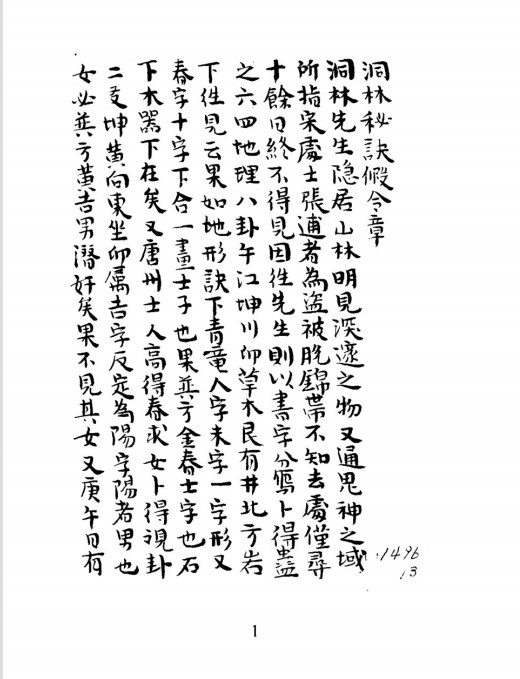 洞林秘訣假令章
洞林先生隐居山林明見深邃之物又通鬼神之域
所指宋處士張逋者為盜被脫錦帶不知去處僅尋
十餘日終不得見因徃先生則以書字分寫卜得蠱
之六四地理八卦午江坤川卯草木艮有井北方岩
下徃見云果如地形訣下青竜人字未字一字形又
春字十字下合一畫士子也果並方金春士字也石
下木器下在矣又唐州士人高得春求女卜得視卦
二爻坤黃向東坐卯屬吉字反定為陽字陽者男也
女必並方黃吉男潛奸矣果不見其女又庚午日有
1496
13
1